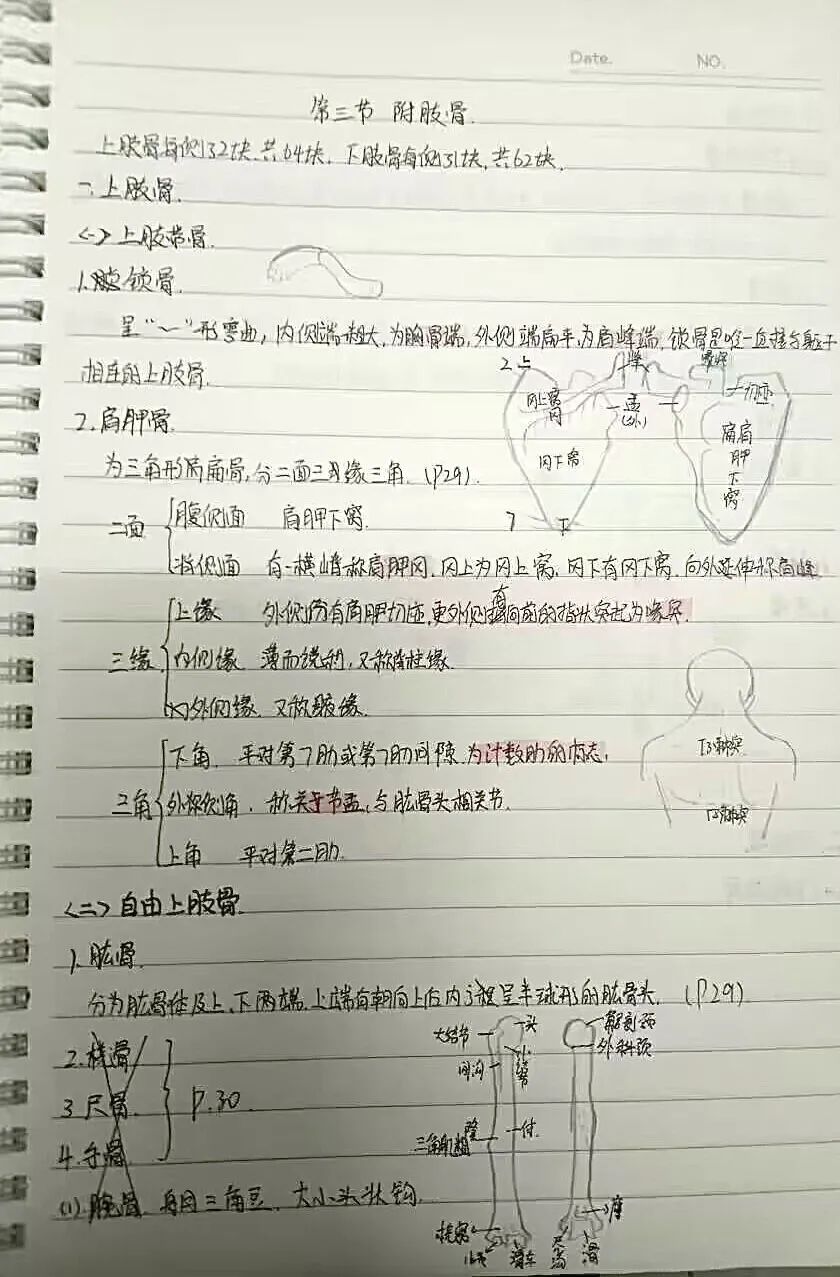 Date.
NO.
第三节 附肢骨.
上肢骨每侧32块,共64块, 下肢骨每侧31块,共62块.
一.上肢骨.
<一>上肢带骨.
1.锁骨.
呈“~”形弯曲, 内侧端粗大,为胸骨端, 外侧端扁平,为肩峰端, 锁骨是唯一直接与躯干
相连的上肢骨.
2.肩胛骨.
为三角形扁骨,分二面三缘三角. (P29).
2 上
冈上窝
冈下窝
盂
切迹
肩胛下窝
7
下
二面
腹侧面 肩胛下窝.
背侧面 有一横嵴称肩胛冈, 冈上为冈上窝, 冈下有冈下窝, 向外延伸称肩峰
三缘
上缘 外侧份有肩胛切迹,更外侧有向前的指状突起为喙突.
内侧缘 薄而锐利,又称脊柱缘.
外侧缘 又称腋缘.
三角
下角 平对第7肋或第7肋间隙,为计数肋的标志,
外侧角. 称关节盂,与肱骨头相关节.
上角 平对第二肋.
T3棘突
<二>自由上肢骨.
1.肱骨.
分为肱骨体及上、下两端,上端有朝向上后内方呈半球形的肱骨头. (P29)
大结节
头
小结节
间沟
解剖颈
外科颈
2.桡骨
3.尺骨
4.手骨
P.30
三角肌粗隆
体
(1)腕骨 舟月三角豆, 大小头状钩.
桡窝
滑车